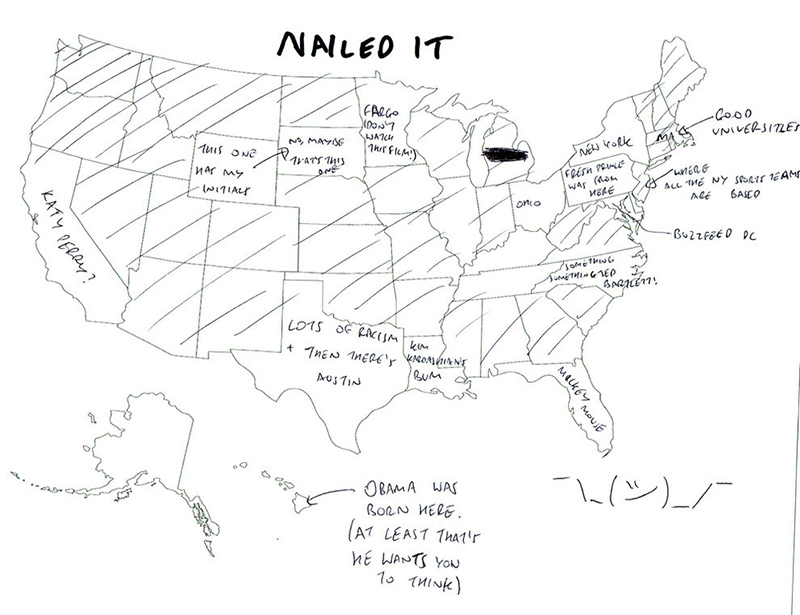 NAILED IT
FARGO
(DON'T
WATCH
THIS FILM!)
THIS ONE
HAS MY
INITIALS
NO, MAYBE
THAT'S THIS
ONE
GOOD
UNIVERSITIES
MA
NEW YORK
FRESH PRINCE
WAS FROM
HERE
WHERE
ALL THE NY SPORTS TEAMS
ARE BASED
OHIO
BUZZFEED DC
KATY PERRY?
SOMETHING
SOMETHING JED
BARTLETT!
LOTS OF RACISM
+ THEN THERE'S
AUSTIN
KIM
KARDASHIAN'S
BUM
MICKEY MOUSE
OBAMA WAS
BORN HERE.
(AT LEAST THAT'S
HE WANTS YOU
TO THINK)
¯\_(ツ)_/¯